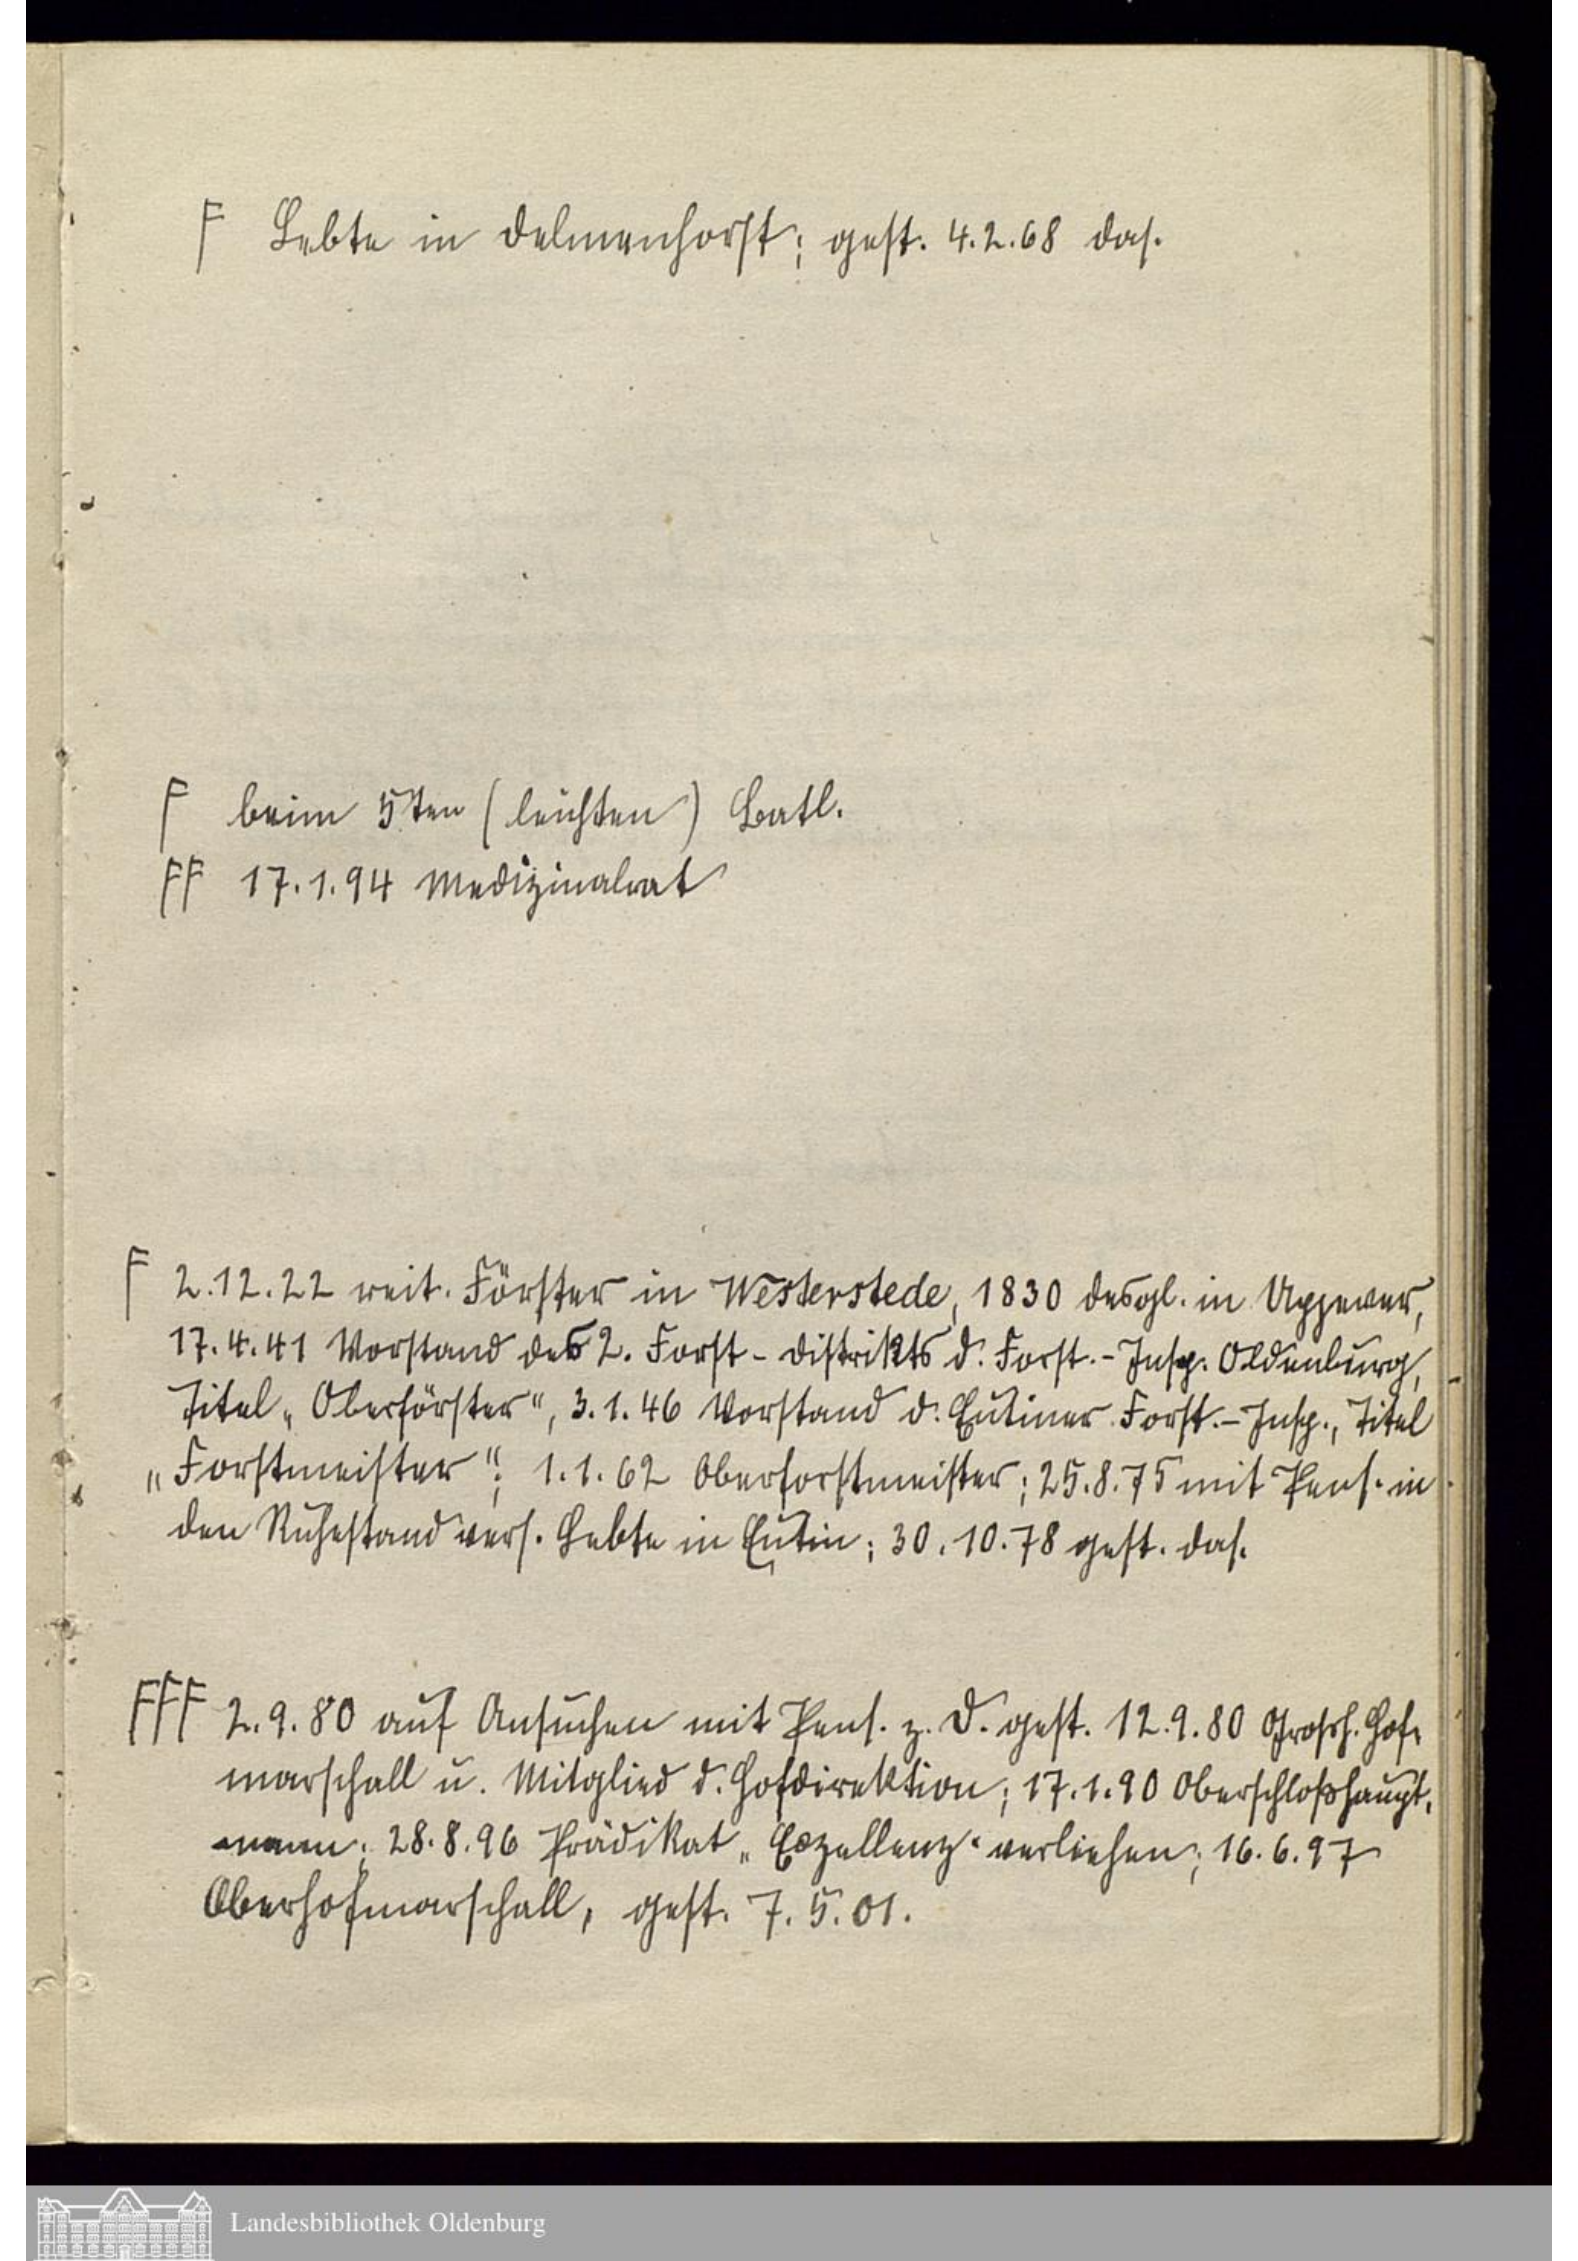 F Lebte in Delmenhorst; gest. 4.2.68 das.
F beim 5ten (leichten) Batl.
FF 17.1.94 Medizinalrat
F 2.12.22 reit. Förster in Westerstede, 1830 desgl. in Upjever,
17.4.41 Vorstand des 2. Forst-Distrikts d. Forst.-Insp. Oldenburg,
Titel „Oberförster", 3.1.46 Vorstand d. Eutiner Forst.-Insp., Titel
„Forstmeister"; 1.1.62 Oberforstmeister; 25.8.75 mit Pens. in
den Ruhestand vers. Lebte in Eutin; 30.10.78 gest. das.
FFF 2.9.80 auf Ansuchen mit Pens. z. D. gest. 12.9.80 Grossh. Hof-
marschall u. Mitglied d. Hofdirektion; 17.1.90 Oberschloßhaupt-
mann; 28.8.96 Prädikat „Exzellenz" verliehen; 16.6.97
Oberhofmarschall, gest. 7.5.01.
Landesbibliothek Oldenburg